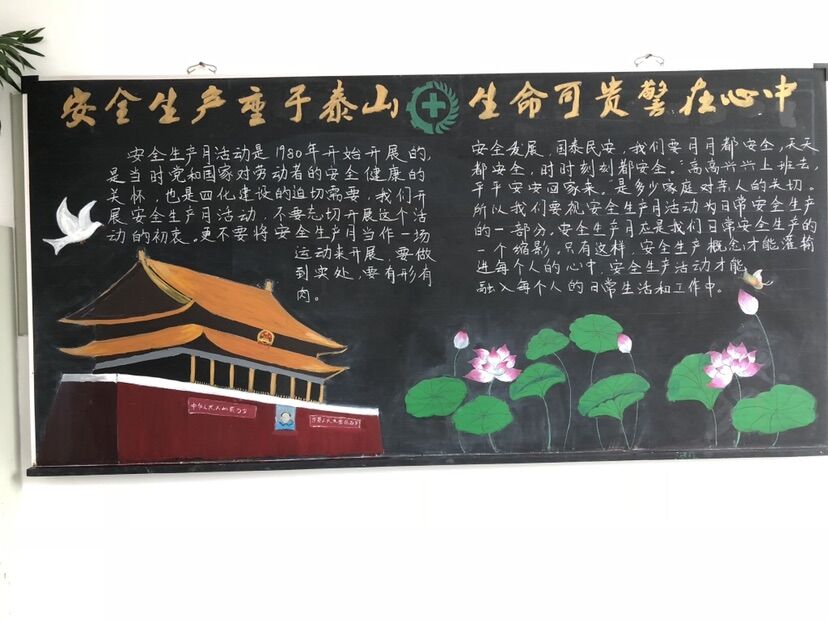 安全生产重于泰山 生命可贵警在心中
安全生产月活动是1980年开始开展的,
是当时党和国家对劳动者的安全健康的
关怀,也是四化建设的迫切需要,我们开
展安全生产月活动,不要忘切开展这个活
动的初衷。更不要将安全生产月当作一场
运动来开展,要做
到实处,要有形有
肉。
安全发展,国泰民安,我们要月月都安全,天天
都安全,时时刻刻都安全。"高高兴兴上班去,
平平安安回家来"是多少家庭对亲人的关切。
所以我们要视安全生产月活动为日常安全生产
的一部分。安全生产月应是我们日常安全生产的
一个缩影。只有这样,安全生产概念才能灌输
进每个人的心中,安全生产活动才能
融入每个人的日常生活和工作中。